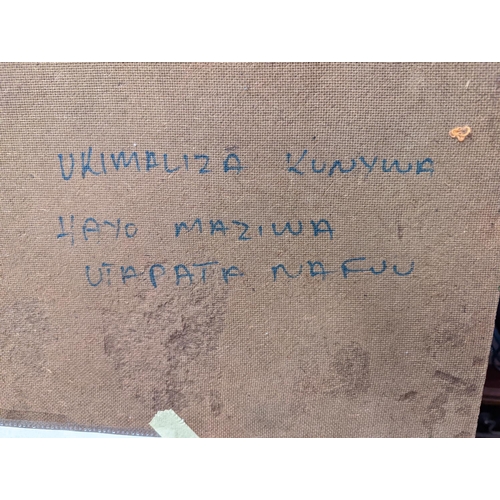 UKIMALIZA KUNYWA
HAYO MAZIWA
UTAPATA NAFUU